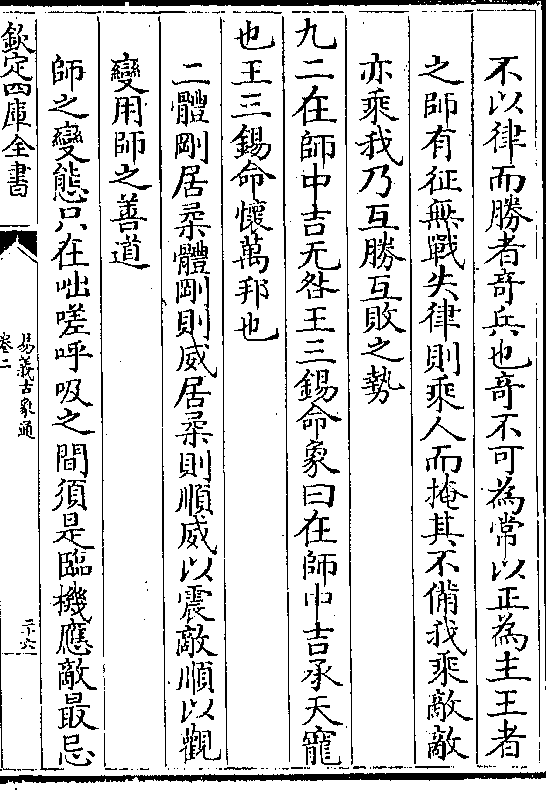 不以律而勝者竒兵也竒不可為常以正為主王者
之師有征無戰失律則乗人而掩其不備我乗敵敵
亦乗我乃互勝互敗之勢
九二在師中吉无咎王三錫命象曰在師中吉承天寵
也王三錫命懷萬邦也
二體剛居柔體剛則威居柔則順威以震敵順以觀
變用師之善道
師之變態只在咄嗟呼吸之間須是臨機應敵最忌
欽定四庫全書
易義古象通
卷二
二十六